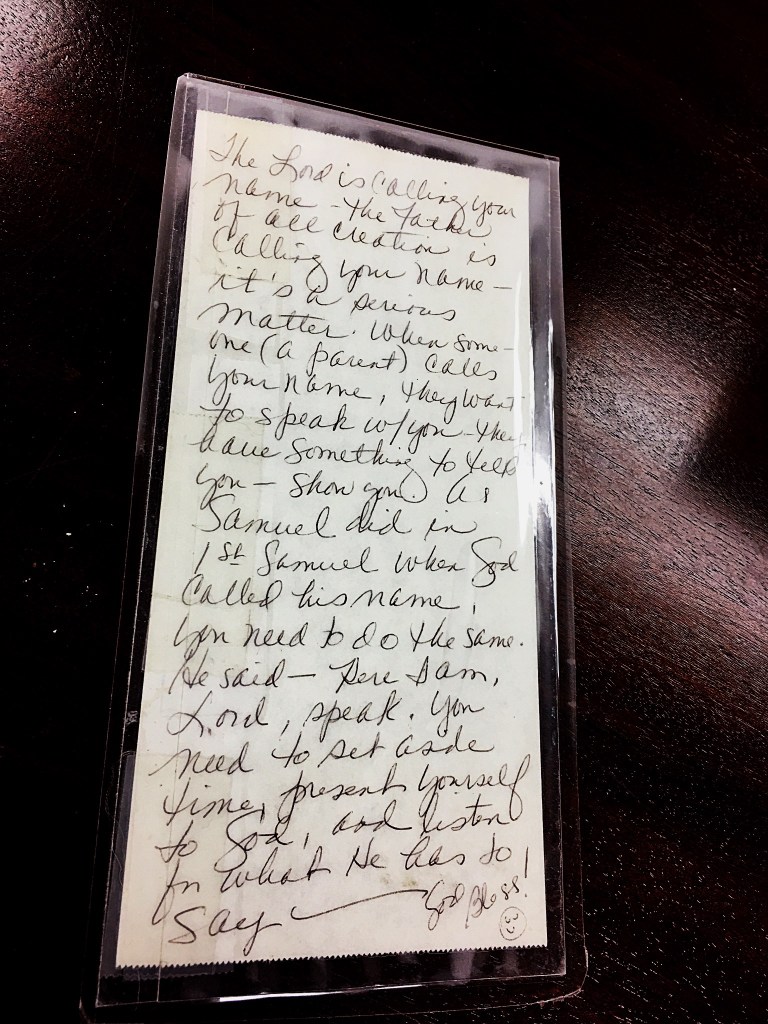 The Lord is calling your
name - the Father
of all creation is
calling your name -
it's a serious
matter. When some-
one (a parent) calls
your name, they want
to speak w/you - they
have something to tell
you - show you. As
Samuel did in
1st Samuel when God
called his name,
you need to do the same.
He said - Here I am,
Lord, speak. You
need to set asde
time, present yourself
to God, and listen
fn what He has to
say — God Bless!